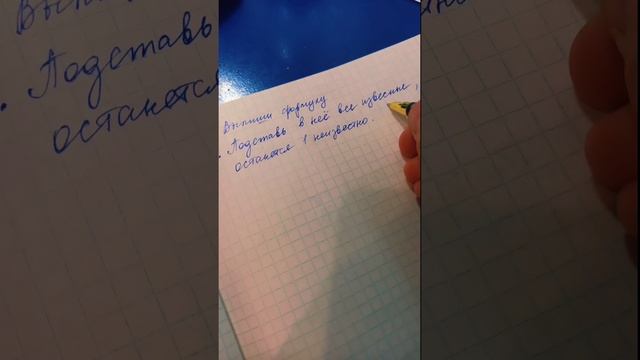 Выпиши формулу
• Подставь в неё все известные,
останется 1 неизвестно.